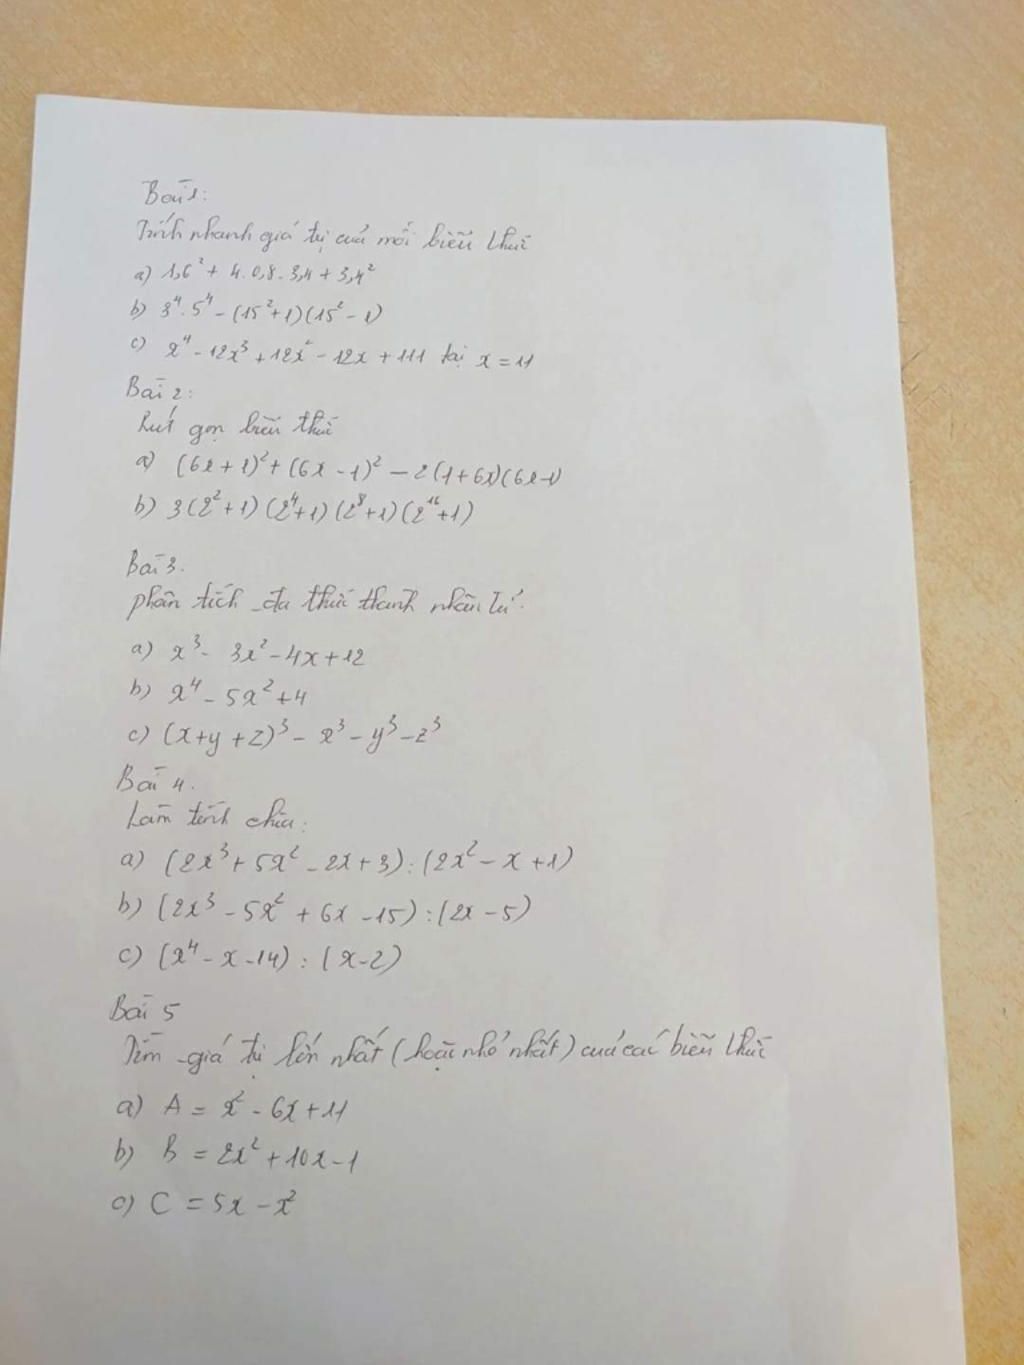 Bài 1:
Tính nhanh giá trị của mỗi biểu thức
a) 1,6² + 4.0,8.3,4 + 3,4²
b) 3⁴.5⁴ - (15²+1)(15² - 1)
c) x⁴ - 12x³ + 12x² - 12x + 111 tại x = 11
Bài 2:
Rút gọn biểu thức
a) (6x + 1)² + (6x - 1)² - 2(1+6x)(6x-1)
b) 3(2² + 1)(2⁴+1)(2⁸+1)(2¹⁶+1)
Bài 3.
phân tích đa thức thành nhân tử.
a) x³ - 3x² - 4x + 12
b) x⁴ - 5x² + 4
c) (x+y+z)³ - x³ - y³ - z³
Bài 4.
Làm tính chia:
a) (2x³ + 5x² - 2x + 3) : (2x² - x + 1)
b) (2x³ - 5x² + 6x - 15) : (2x - 5)
c) (x⁴ - x - 14) : (x - 2)
Bài 5
Tìm giá trị lớn nhất (hoặc nhỏ nhất) của các biểu thức
a) A = x² - 6x + 11
b) B = 2x² + 10x - 1
c) C = 5x - x²